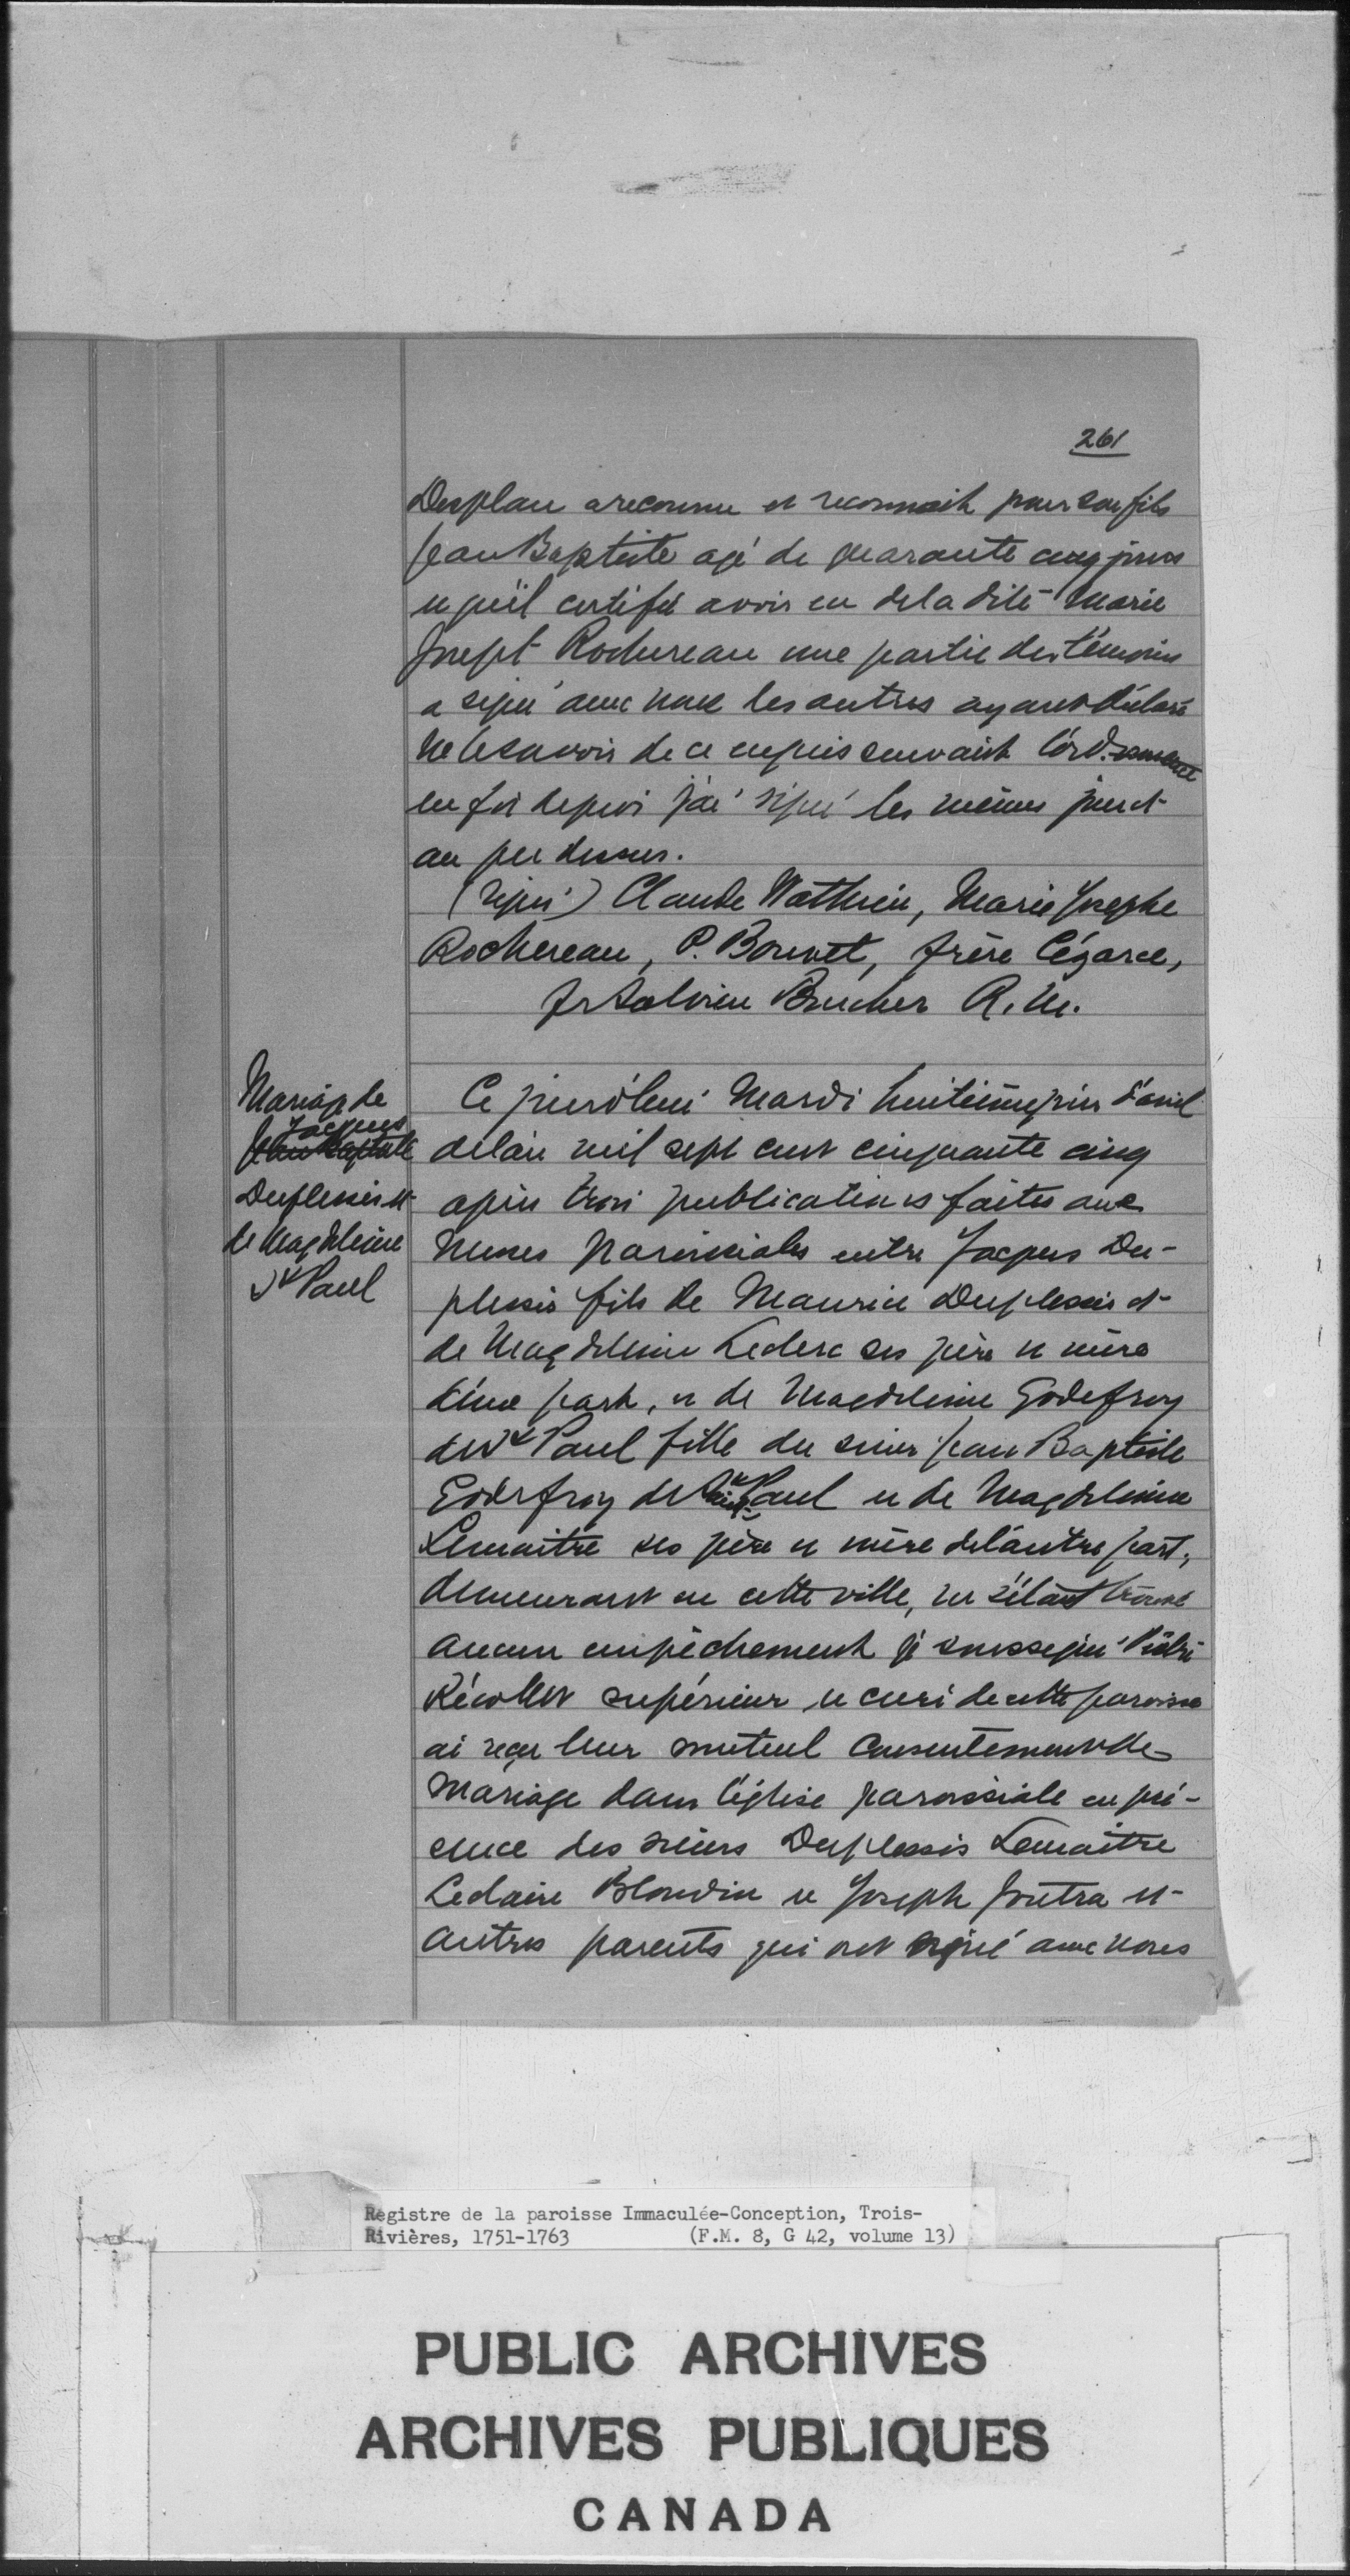 261
Duplau a reconnu et reconnoit pour son fils
Jean Baptiste agé de quarante cinq jours
et qu'il certifie avoir eu de la dite Marie
Joseph Rochereau une partie des témoins
a signé avec nous les autres ayant déclaré
ne le savoir de ce enquis suivant l'ord.
en foi de quoi j'ai signé les mêmes jour et
an que dessus.
(signé) Claude Mathieu, Marie Josephe
Rochereau, P. Bouvet, frère Cézare,
fr Salvien Boucher R. M.
Mariage de
Jacques
Jean Baptiste
Duplessis et
de Magdeleine
St Paul
Ce jourd'hui Mardi huitième jour d'avril
de l'an mil sept cent cinquante cinq
après trois publications faites aux
messes Paroissiales entre Jacques Du-
plessis fils de Maurice Duplessis et
de Magdeleine Leclerc ses père et mère
d'une part, et de Magdeleine Godefroy
de St Paul fille du sieur Jean Baptiste
Godefroy de St Paul et de Magdeleine
Lemaitre ses père et mère de l'autre part,
demeurant en cette ville, ne s'étant trouvé
aucun empêchement je soussigné Prêtre
Récollet supérieur et curé de cette paroisse
ai reçu leur mutuel consentement de
Mariage dans l'église paroissiale en pré-
ence des sieurs Duplessis Lemaitre
Leclaire Blondin et Joseph Joutra et
autres parents qui ont signé avec nous
Registre de la paroisse Immaculée-Conception, Trois-
Rivières, 1751-1763 (F.M. 8, G 42, volume 13)
PUBLIC ARCHIVES
ARCHIVES PUBLIQUES
CANADA